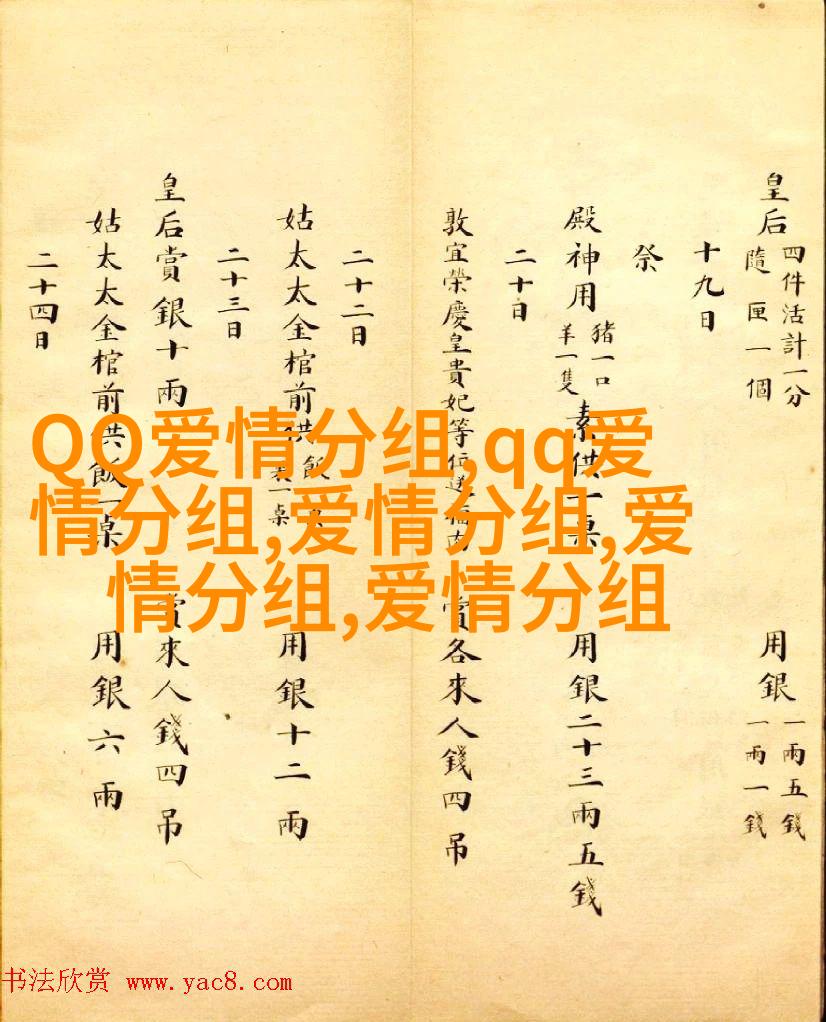 皇后
四件活計一分
隨匣一個
用銀
一兩五錢
一兩一錢
十九日
祭
殿神用
豬一口
羊一隻
素供一桌
用銀二十三兩五錢
二十日
敦宜榮慶皇貴妃等位送福肉
賞各來人錢四吊
二十二日
姑太太金棺前供飯
用銀十二兩
二十三日
皇后賞銀十兩
賞來人錢四吊
姑太太金棺前供飯一桌
用銀六兩
二十四日
QQ爱情分组,qq爱
情分组,爱情分组,爱
情分组,爱情分组
书法欣赏 www.yac8.com